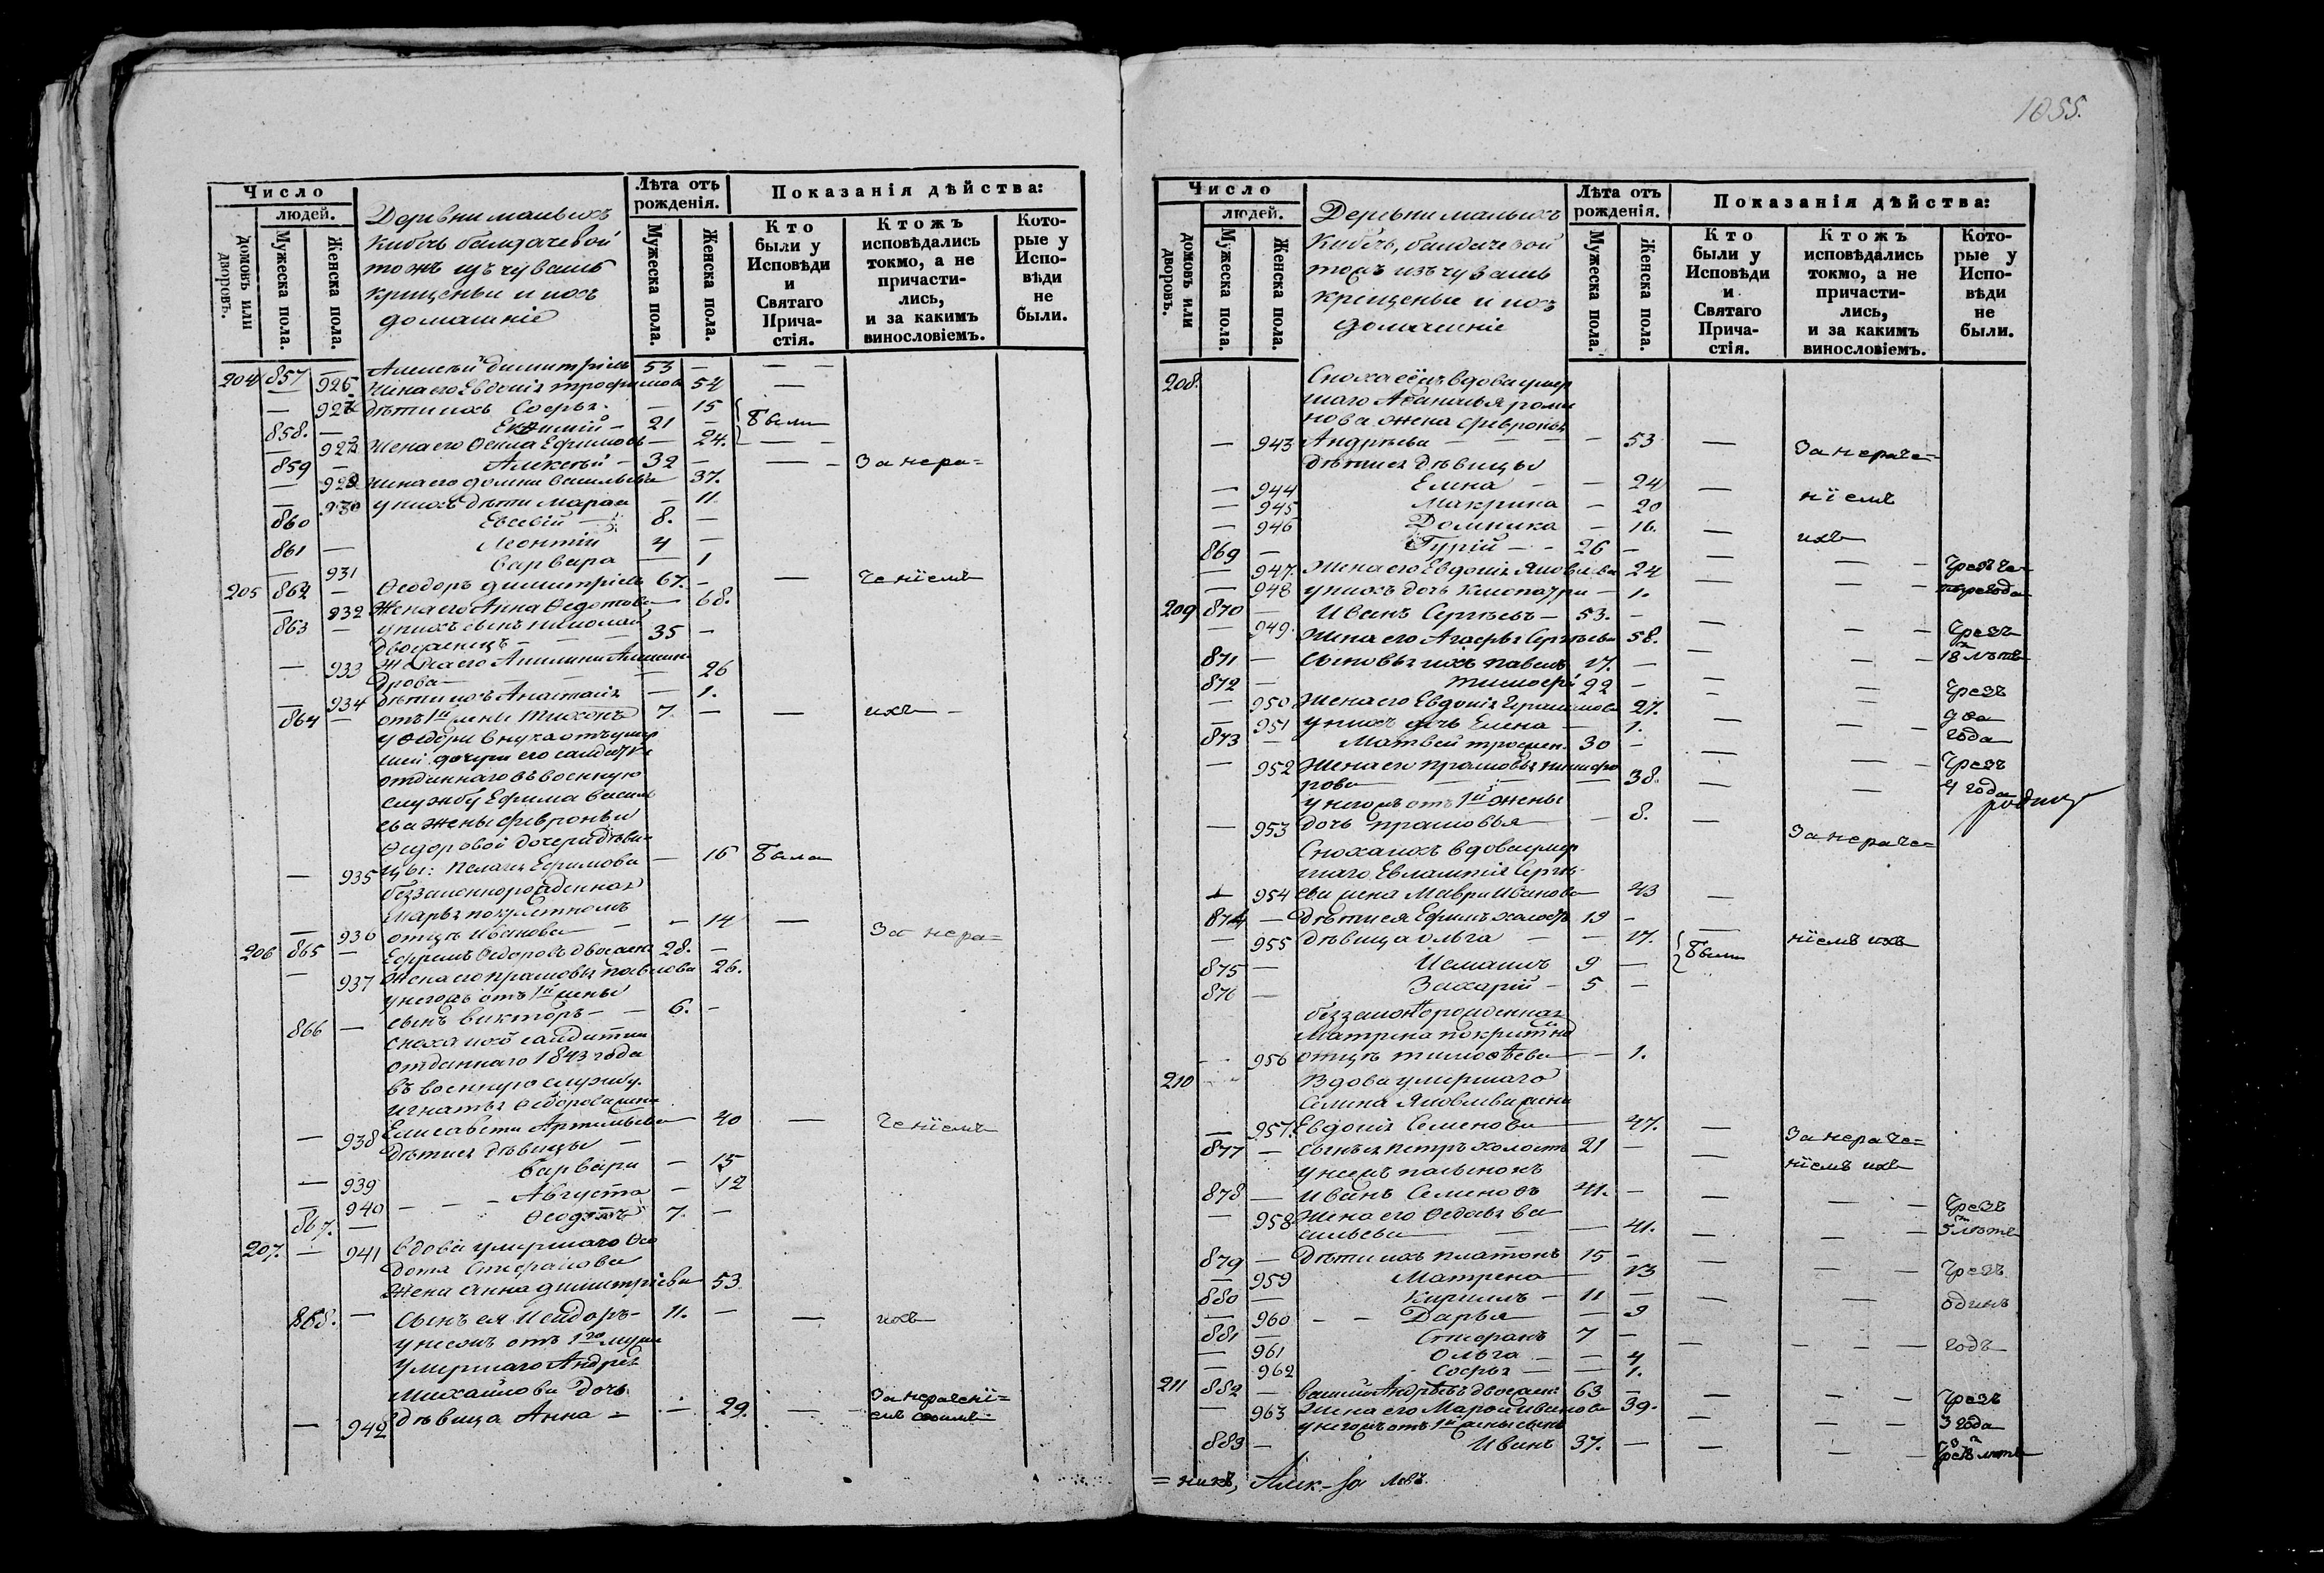 1055.
Число
людей.
домовъ или дворовъ.
Мужеска пола.
Женска пола.
Деревни малыхъ
Кибечь
тожъ изъ чувашъ
крещеные и ихъ
домашніе
Лѣта отъ рожденія.
Мужеска пола.
Женска пола.
Показанія дѣйства:
Кто были у Исповѣди и Святаго Причастія.
Ктожъ исповѣдались токмо, а не причастились, и за какимъ винословіемъ.
Которые у Исповѣди не были.
204 857 — Алексѣй Димитріевъ 53 — — —
— 926 Жена его Евдокія Трофимова 52 —
— 927 Дѣти ихъ Софья — 15
858. — 21 — Были
Жена его Ефимова — 24. — —
859 — Алексѣй — 32 — — — За нера=
Жена его Домна Васильева 37.
— 930 у нихъ дѣти Марѳа — 11.
860 Евсевій — 8. —
861 — Леонтій 4 —
— 931 Варвара — 1
205 862 — Ѳеодоръ Димитріевъ 67. — — ченіемъ
— 932 Жена его Анна Ѳедотова — 68.
863 — у нихъ сынъ Николай
двоеженецъ — — — 35 —
— 933 Жена его Акилина Алексан
дрова — — — — 26
— 934 Дѣти ихъ Анастасія — 1.
864 — отъ 1й жены Тихонъ 7 — — ихъ —
у Ѳедора внука отъ умер
шей дочери его салдатки
отданнаго въ военную
службу Ефима Василь
ева жены Февроньи
Ѳедоровой дочери дѣви
— 935 цы: Пелагея Ефимова — 16 Была
беззаконнорожденная
Марья по крестномъ
— 936 отцѣ Иванова — — 14 — За нера=
206 865 — Ефремъ Ѳедоровъ двоежен 28. —
— 937 Жена его Прасковья Павлова 26.
у него жъ отъ 1й жены
866 — сынъ Викторъ — — 6. —
сноха ихъ салдатка
отданнаго 1843 года
въ военную службу
Игнатья Ѳедорова жена
— 938 Елисавета Артемьева — 40 — ченіемъ
Дѣти ея дѣвицы —
— 939 Варвара — 15
— 940 — — — Августа — 12
867. — Ѳеодотъ 7. —
207. — 941 Вдова умершаго Ѳео
дота Стефанова
Жена Анна Димитріева 53
868. — Сынъ ея Исидоръ — 11. — — ихъ
у нее жъ отъ 1го мужа
умершаго Андрея
Михайлова дочь
— 942 дѣвица Анна — — 29. — За нерачені=
емъ своимъ
Число
людей.
домовъ или дворовъ.
Мужеска пола.
Женска пола.
Деревни малыхъ
Кибечь,
тожъ изъ чувашъ
крещеные и ихъ
домашніе
Лѣта отъ рожденія.
Мужеска пола.
Женска пола.
Показанія дѣйства:
Кто были у Исповѣди и Святаго Причастія.
Ктожъ исповѣдались токмо, а не причастились, и за какимъ винословіемъ.
Которые у Исповѣди не были.
208. Сноха вдова умер
шаго Аѳанасья Рома
нова жена Февронья
— 943 Андрѣева — — — — 53 — За нераче=
Дѣти ея дѣвицы
— 944 Елена — — 24
— 945 Макрина — 20 — ніемъ
— 946 Домника — 16. — ихъ
869 — Гурій — — 26 —
— 947. Жена его Евдокія Яковлева 24 — — —
— 948 у нихъ дочь — 1. — — —
209 870 — Иванъ Сергѣевъ — 53. — —
— 949. Жена его Агафья Сергѣева 58. — — Чрезъ
871 — Сыновья ихъ Павелъ 17. — — — 18 лѣтъ
872 — Тимофей 22 — —
— 950 Жена его Евдокія Герасимова 27. — — Чрезъ
— 951 у нихъ дочь Елена — 1. — — два
873 — Матвей 30 — — года
— 952 Жена его Прасковья Никифо — Чрезъ
рова — — — 38. — 4 года
у него жъ отъ 1й жены
— 953 дочь Прасковья — — 8. — За нераче=
Сноха ихъ вдова умер
шаго Евлампія Сергѣ
— 954 ева жена Мавра Иванова — 43 —
874 — Дѣти ея Ефимъ холостъ 19 —
— 955 дѣвица Ольга — — 17. Были ніемъ ихъ
875 — 9 —
876 — Захарій — 5 —
беззаконнорожденная
Матрена по крестно
956 отцѣ Тимоѳѣева — — 1.
210 Вдова умершаго
Семена Яковлева жена
— 957. Евдокія Семенова — 47. — За нераче=
877 — Сынъ ея Петръ холостъ 21 — — ніемъ ихъ
878 — Иванъ Семеновъ 41. — — — Чрезъ
— 958 Жена его Ѳедосья Ва
сильева — — 41. — — — 5 лѣтъ
879 — Дѣти ихъ Платонъ 15 —
— 959 Матрена — 13 — — — Чрезъ
880 — Кириллъ — 11 — — — одинъ
— 960 — — Дарья — 9
881 — Стефанъ 7 — — — — годъ
— 961 Ольга — — 4
— 962 Софья — — 1.
211 882 — Андрѣевъ двоежен 63 — — — Чрезъ
— 963 Жена его Марѳа Иванова 39. — — 3 года
у него жъ отъ 1й жены сынъ
883 — Иванъ 37. — — — Чрезъ лѣтъ